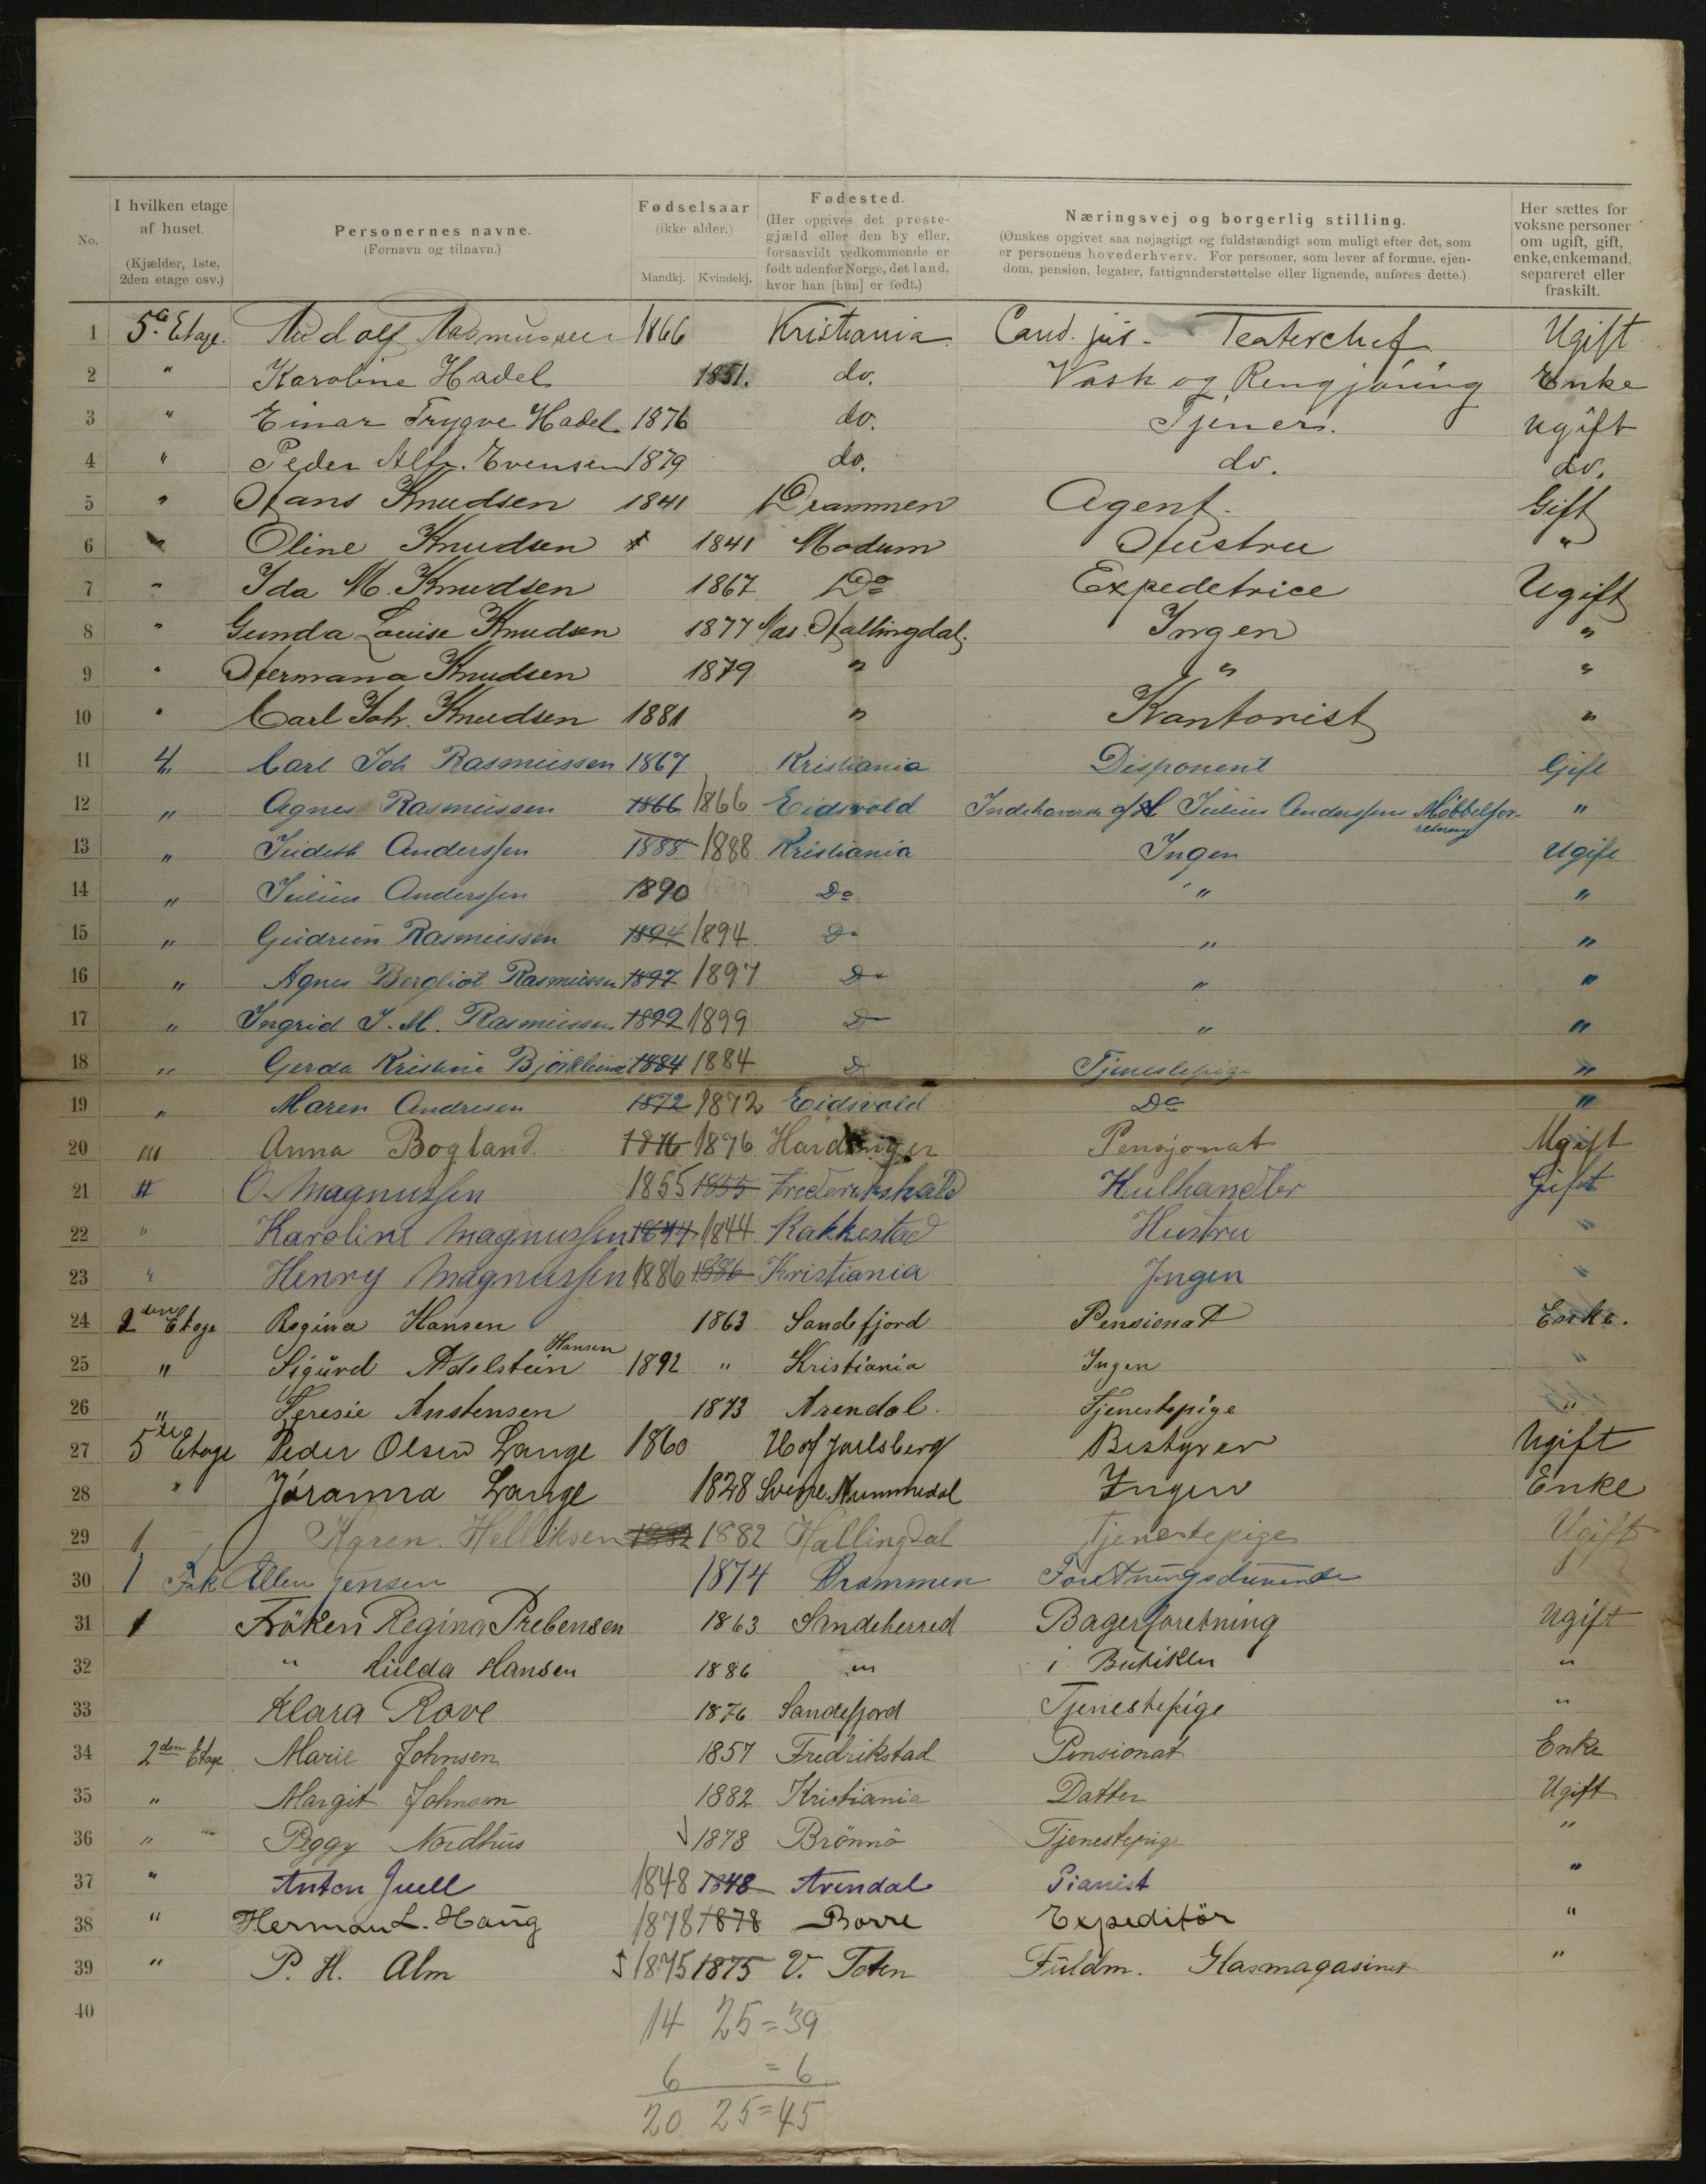 No.
I hvilken etage af huset. (Kjælder, 1ste, 2den etage osv.)
Personernes navne. (Fornavn og tilnavn.)
Fødselsaar (ikke alder.) Mandkj. Kvindekj.
Fødested. (Her opgives det prestegjæld eller den by eller, forsaavidt vedkommende er født udenfor Norge, det land, hvor han [hun] er født.)
Næringsvej og borgerlig stilling. (Ønskes opgivet saa nøjagtigt og fuldstændigt som muligt efter det, som er personens hovederhverv. For personer, som lever af formue, ejendom, pension, legater, fattigunderstøttelse eller lignende, anføres dette.)
Her sættes for voksne personer om ugift, gift, enke, enkemand, separeret eller fraskilt.
1 5te Etage. Rudolf Rasmussen 1866 Kristiania Cand. jur. Teaterchef Ugift
2 " Karoline Hadel 1851. do. Vask og Rengjöring Enke
3 " Einar Trygve Hadel 1876 do. Tjener. ugift
4 " Peder Alfr. Evensen 1879 do. do. do.
5 " Hans Knudsen 1841 Drammen Agent. Gift
6 " Oline Knudsen 1841 Modum Hustru "
7 " Ida M. Knudsen 1867 Do Expedetrice Ugift
8 " Gunda Louise Knudsen 1877 Nas. Hallingdal. Ingen "
9 " Hermana Knudsen 1879 " " "
10 " Carl Joh. Knudsen 1881 " Kontorist "
11 4. Carl Joh Rasmussen 1867 Kristiania Disponent Gift
12 " Agnes Rasmussen 1866 1866 Eidsvold Indehaversk af Julius Anderssens Möbbelforretning "
13 " Judith Anderssen 1888 1888 Kristiania Ingen Ugift
14 " Julius Anderssen 1890 Do " "
15 " Gudrun Rasmussen 1894 1894. Do " "
16 " Agnes Bergliot Rasmussen 1897 1897 Do " "
17 " Ingrid J. M. Rasmussen 1899 1899 Do " "
18 " Gerda Kristine Björklund 1884 1884 D Tjenestepige "
19 " Maren Andresen 1872 1872 Eidsvold Do "
20 III Anna Bogland 1876 1876 Hardanger Pensjonat Ugift
21 II O. Magnussen 1855 1855 Frederikshald Kulhandler Gift
22 " Karoline Magnussen 1844 1844 Rakkestad Hustru "
23 " Henry Magnussen 1886 1886 Kristiania Ingen "
24 2den Etage Regina Hansen 1863 Sandefjord Pensionat Enke.
25 " Sigurd Adelstein Hansen 1892 " Kristiania Ingen "
26 " Teresie Austensen 1873 Arendal. Tjenestepige "
27 5te Etage Peder Olsen Lange 1860 Hof Jarlsberg Bestyrer Ugift
28 " Jóranna Lange 1828 Svene Nummedal Ingen Enke
29 Karen Helliksen 1882 1882 Hallingdal Tjenestepige Ugift
30 1 Frk Ellen Jensen 1874 Drammen
31 1 Fröken Regina Prebensen 1863 Sandeherred Bagerforetning Ugift
32 " Hulda Hansen 1886 " i Butiken "
33 Klara Rove 1876 Sandefjord Tjenestepige "
34 2den Etage Marie Johnsen 1857 Fredrikstad Pensionat Enke
35 " Margit Johnsen 1882 Kristiania Datter Ugift
36 " Peggy Nordhus 1878 Brönnö Tjenestepige "
37 " Anton Juell 1848 1848 Arendal Pianist "
38 " Herman L. Haug 1878 1878 Borre Expeditör "
39 " P. H. Alm 1875 1875 V. Toten Fuldm. Glasmagasinet "
40
14 25 = 39
6 = 6
20 25 = 45